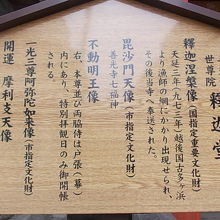 世尊院 釈迦堂
釈迦涅槃像（国指定重要文化財）
天延三年（九七三）越後国古多ヶ浜
より漁師の網にかかり出現せられ、
その後当寺へ奉送された。
毘沙門天像（市指定文化財）
善光寺七福神
不動明王像
右、本尊並び両脇侍は戸張（幕）
内にあり、特別拝観日のみ御開帳
される。
一光三尊阿弥陀如来像（市指定文化財）
開運 摩利支天像